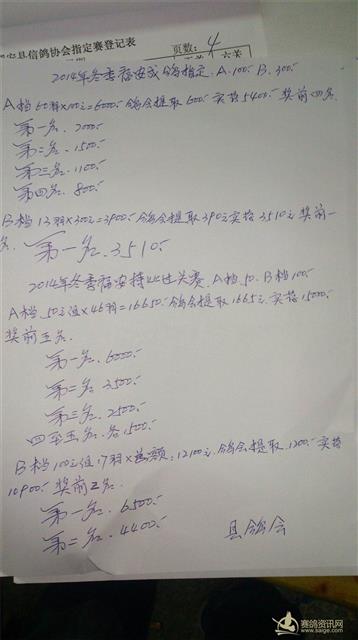 县信鸽协会指定赛登记表
页数: 4
2014年冬季福安戎鸽指定. A.100- B.300-
A档60羽x100元=6000- 鸽会提取600- 实发5400- 奖前四名
第一名. 2000-
第二名. 1500-
第三名. 1100-
第四名. 800-
B档13羽x300元=3900- 鸽会提取390元实发3510元奖前一
名. 第一名. 3510-
2014年冬季福安特比过关赛. A档.50. B档100-
A档.50元值x46羽=16650- 鸽会提取1665元. 实发15000-
奖前五名.
第一名. 6000-
第二名. 3500-
第三名. 2500-
四至五名.各1500-
B档100元值17羽x 额=12100元.鸽会提取1200- 实发
10900- 奖前二名.
第一名. 6500-
第二名. 4400-
县鸽会
赛鸽资讯网
www.saige.com